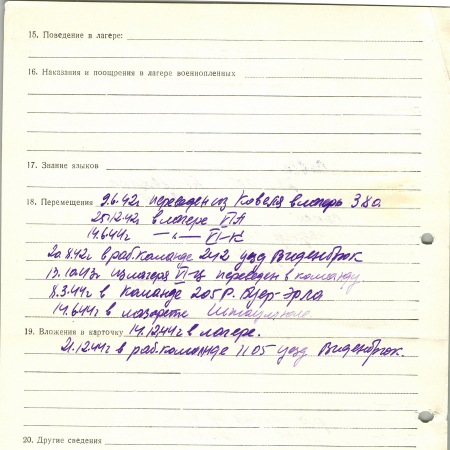 15. Поведение в лагере:
16. Наказания и поощрения в лагере военнопленных
17. Знание языков
18. Перемещения 9.6.42г пересден из Ковеля в лагерь 380.
25.12.42 в лагере VIA
14.6.44г — „ — VI-К
20.8.42 в раб.команде 242 уезд Виденбрюк
13.10.43г из лагеря VI-ц пересден в команду
8.3.44г в команде 205 Р. Буер-Эрла
14.6.44г в лазарете
19. Вложения в карточку 14.12.44г в лагере.
21.12.44г в раб.команде 1105 уезд Виденбрюк.
20. Другие сведения